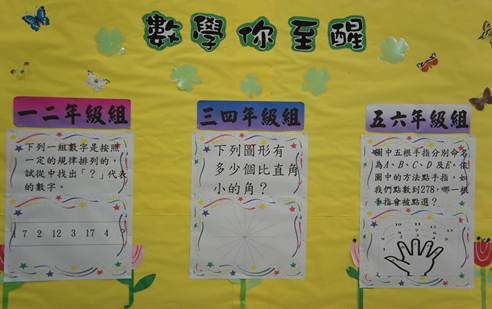 數學你至醒
一二年級組
下列一組數字是按照
一定的規律排列的,
試從中找出「?」代表
的數字。
7 2 12 3 17 4 ?
三四年級組
下列圖形有
多少個比直角
小的角?
五六年級組
圖中五根手指分別命名
為A、B、C、D及E,依
圖中的方法點手指,如
我們點數到278,哪一根
手指會被點選?